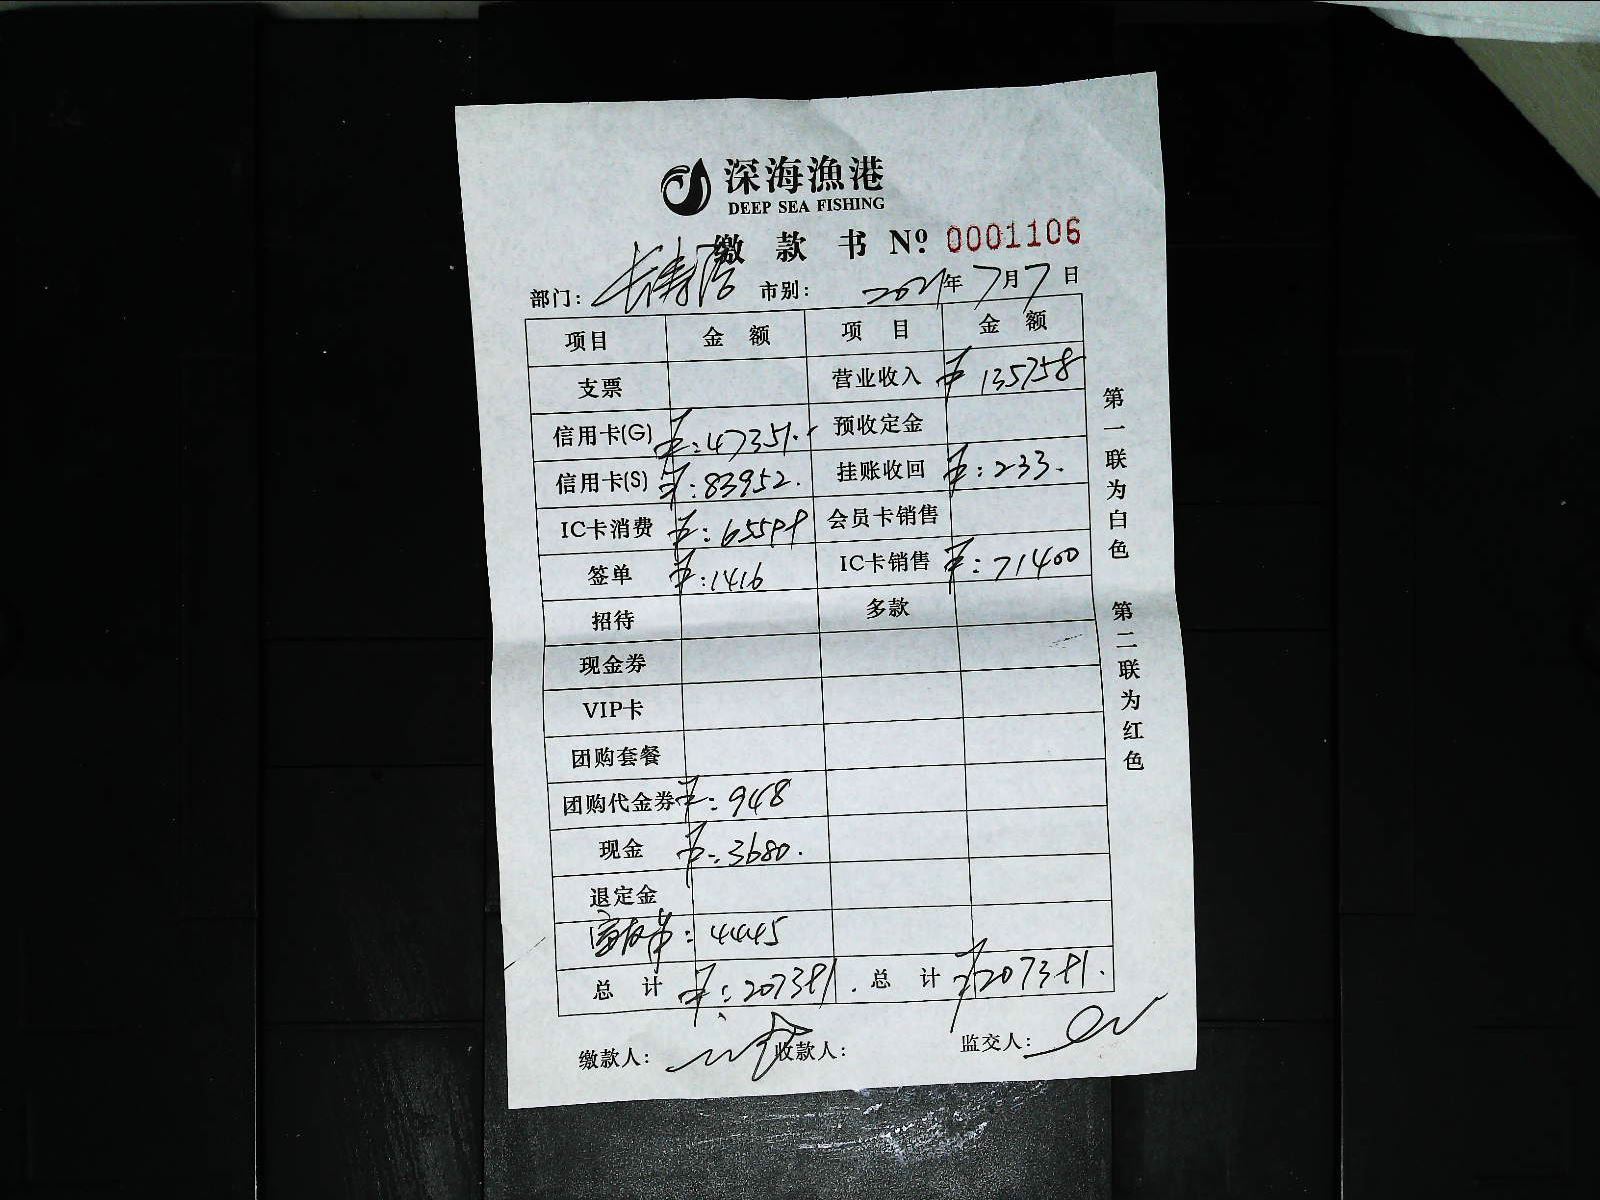 深海漁港
DEEP SEA FISHING
缴款书 Nº: 0001106
部门: 长寿 市别: 2021年7月7日
项目 金额 项目 金额
支票 营业收入 ¥135758
信用卡(G) ¥:47351. 预收定金
信用卡(S) ¥:83952. 挂账收回 ¥:233.
IC卡消费 ¥:65599 会员卡销售
签单 ¥:1416 IC卡销售 ¥:71400
招待 多款
现金券
VIP卡
团购套餐
团购代金券 ¥:948
现金 ¥:3680.
退定金
: 4445
总计 ¥:207391. 总计 ¥207391.
缴款人: 收款人: 监交人:
第一联为白色 第二联为红色